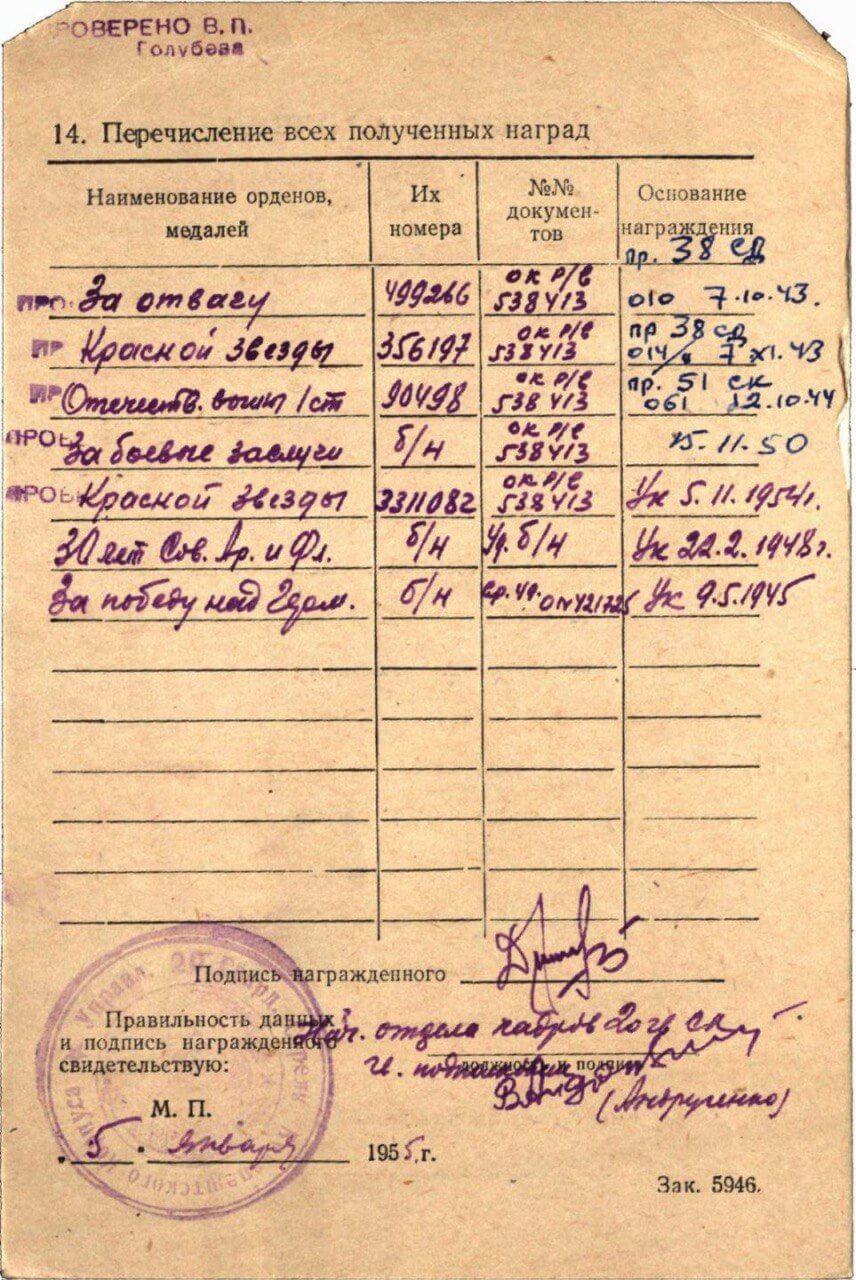 ПРОВЕРЕНО В. П.
Голубева
14. Перечисление всех полученных наград
Наименование орденов, медалей | Их номера | №№ документов | Основание награждения
пр. 38 сд
ПРО За отвагу | 499266 | ок р/с 538413 | 010 7.10.43.
ПР Красной звезды | 356197 | ок р/с 538413 | пр 38 сд 014 7.XI.43
ПР Отечеств. войны 1 ст | 90498 | ок р/с 538413 | пр. 51 ск 061 12.10.44
ПРОВ За боевые заслуги | б/н | ок р/с 538413 | 15.11.50
ПРОВ Красной звезды | 3311082 | ок р/с 538413 | Ук 5.11.1954г.
30 лет Сов. Ар. и Фл. | б/н | Уд. б/н | Ук 22.2.1948г.
За победу над Герм. | б/н | 0№421725 | Ук 9.5.1945
Подпись награжденного
Правильность данных
и подпись награжденного
свидетельствую:
Нач. отдела кадров 20 гв ск
должность и подпись
М. П.
5 января 1955 г.
Зак. 5946.